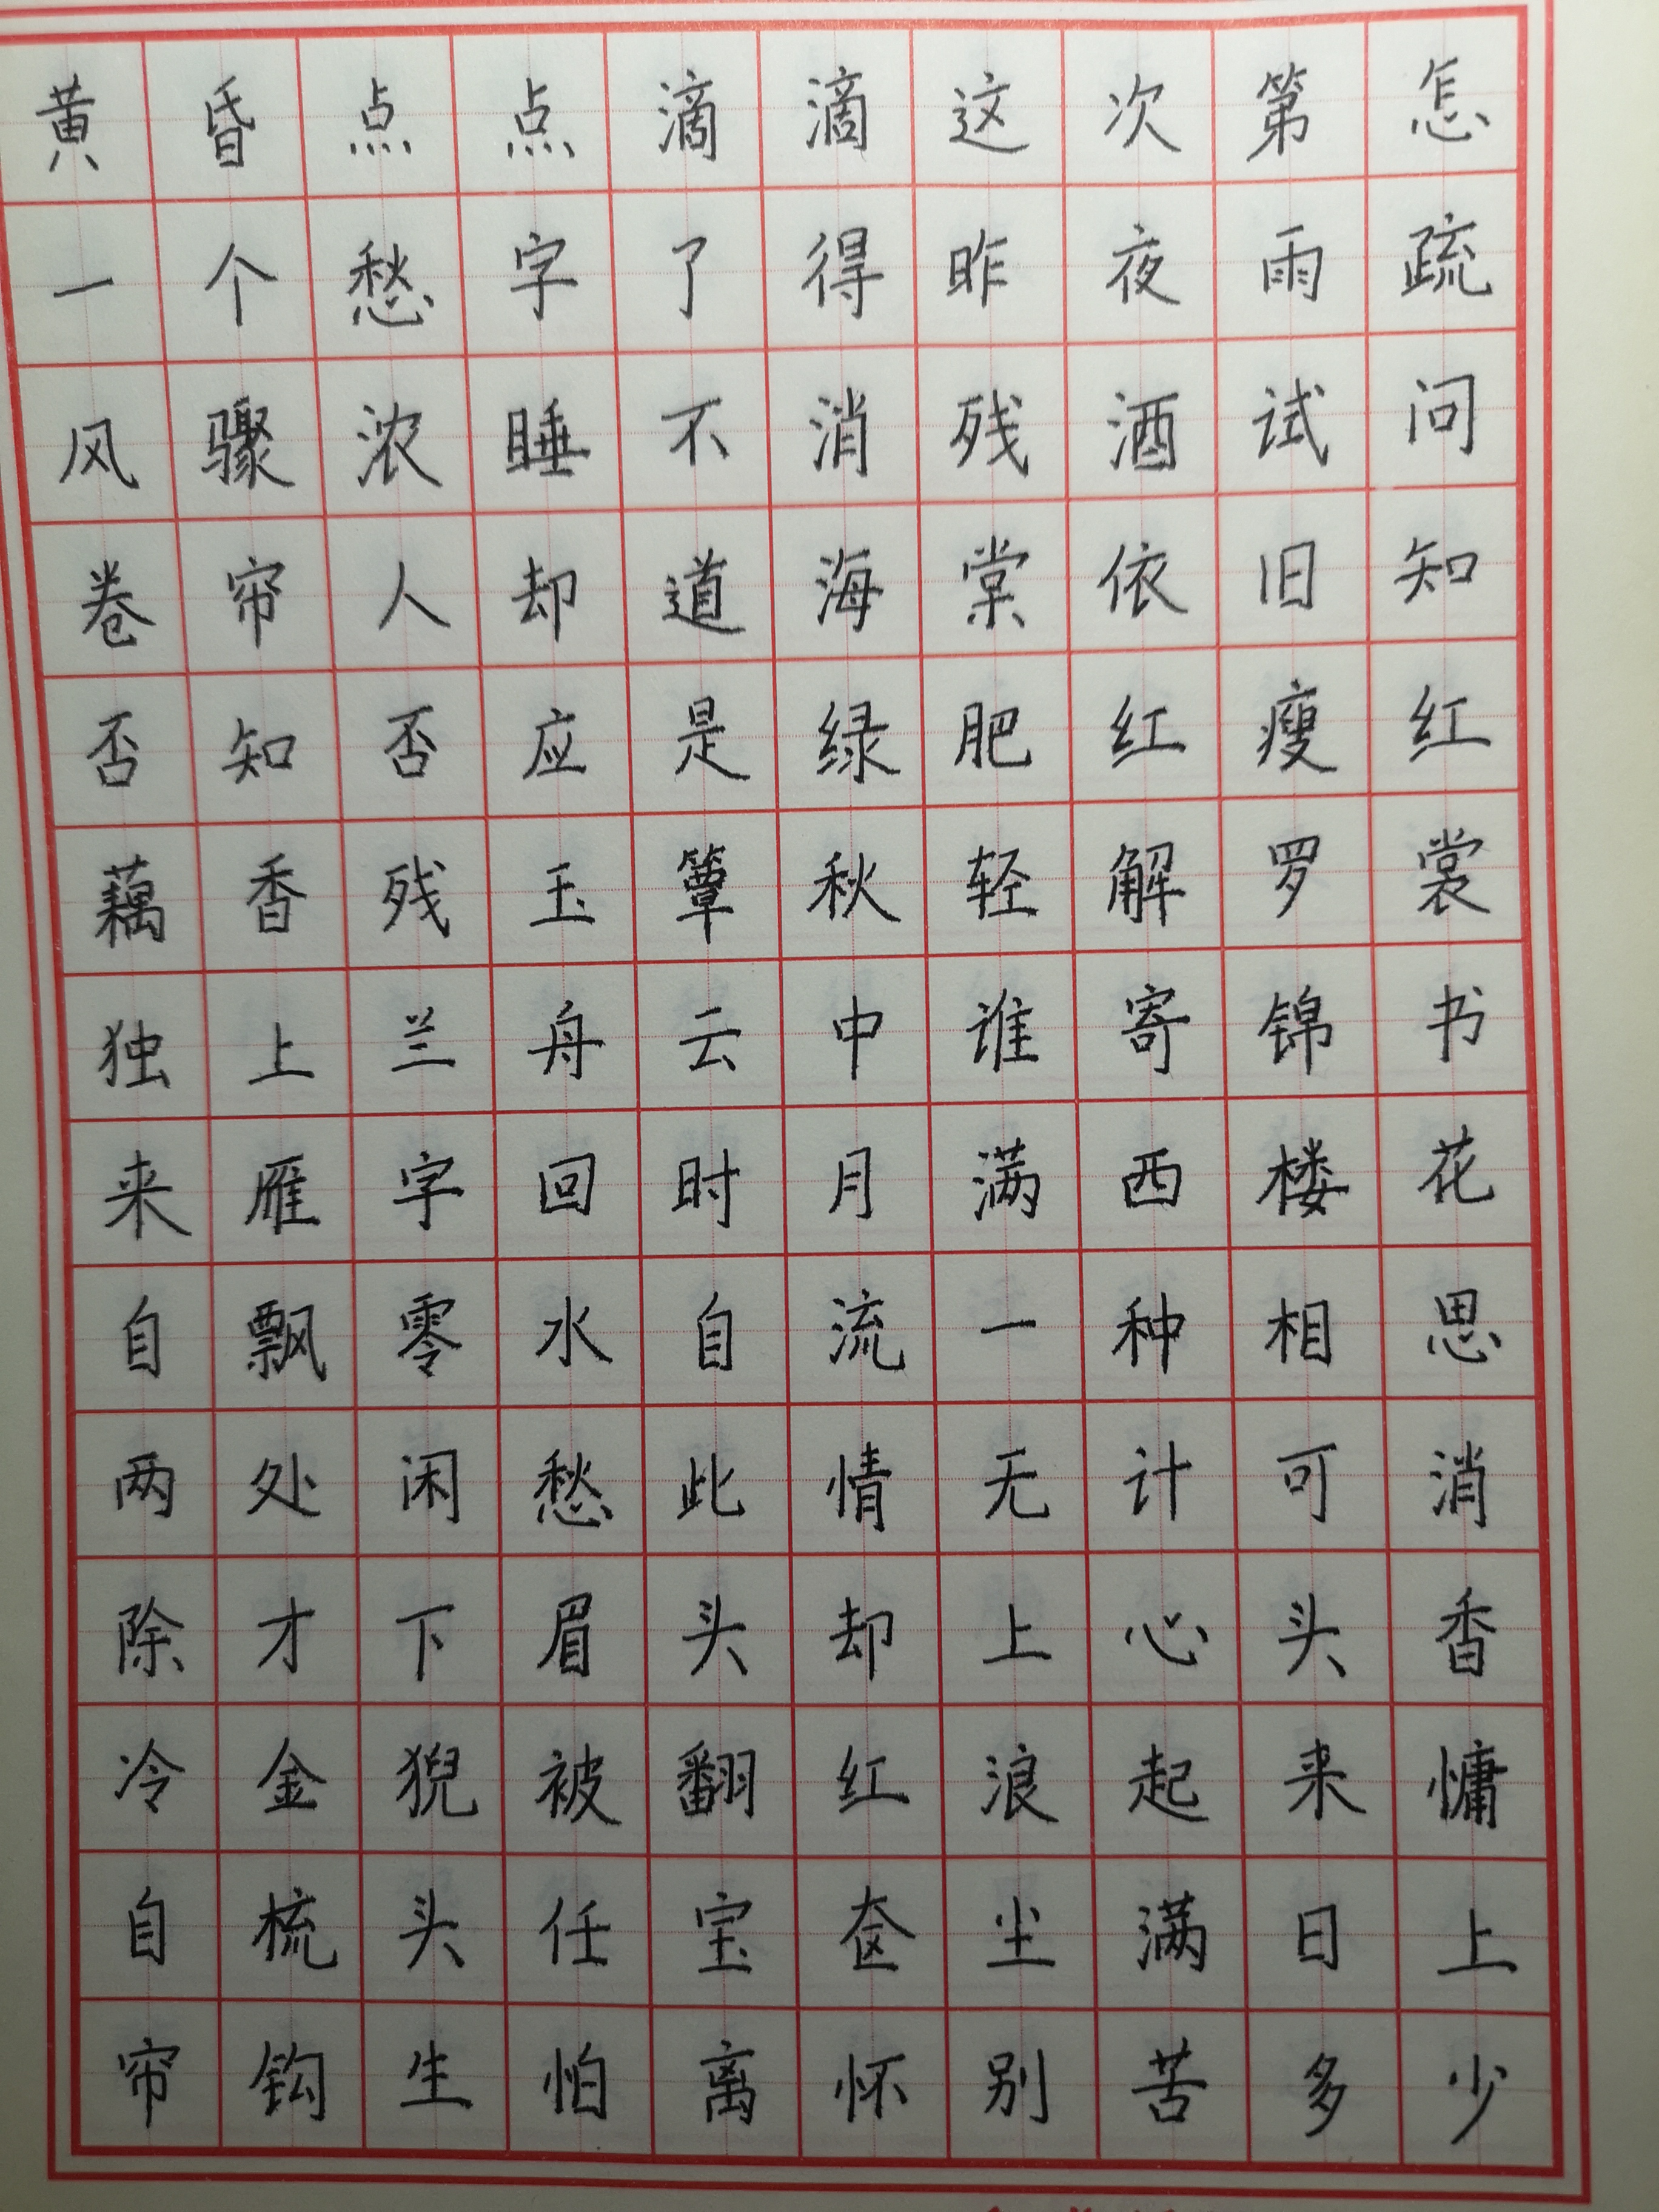 黄昏点点滴滴这次第怎
一个愁字了得昨夜雨疏
风骤浓睡不消残酒试问
卷帘人却道海棠依旧知
否知否应是绿肥红瘦红
藕香残玉簟秋轻解罗裳
独上兰舟云中谁寄锦书
来雁字回时月满西楼花
自飘零水自流一种相思
两处闲愁此情无计可消
除才下眉头却上心头香
冷金猊被翻红浪起来慵
自梳头任宝奁尘满日上
帘钩生怕离怀别苦多少